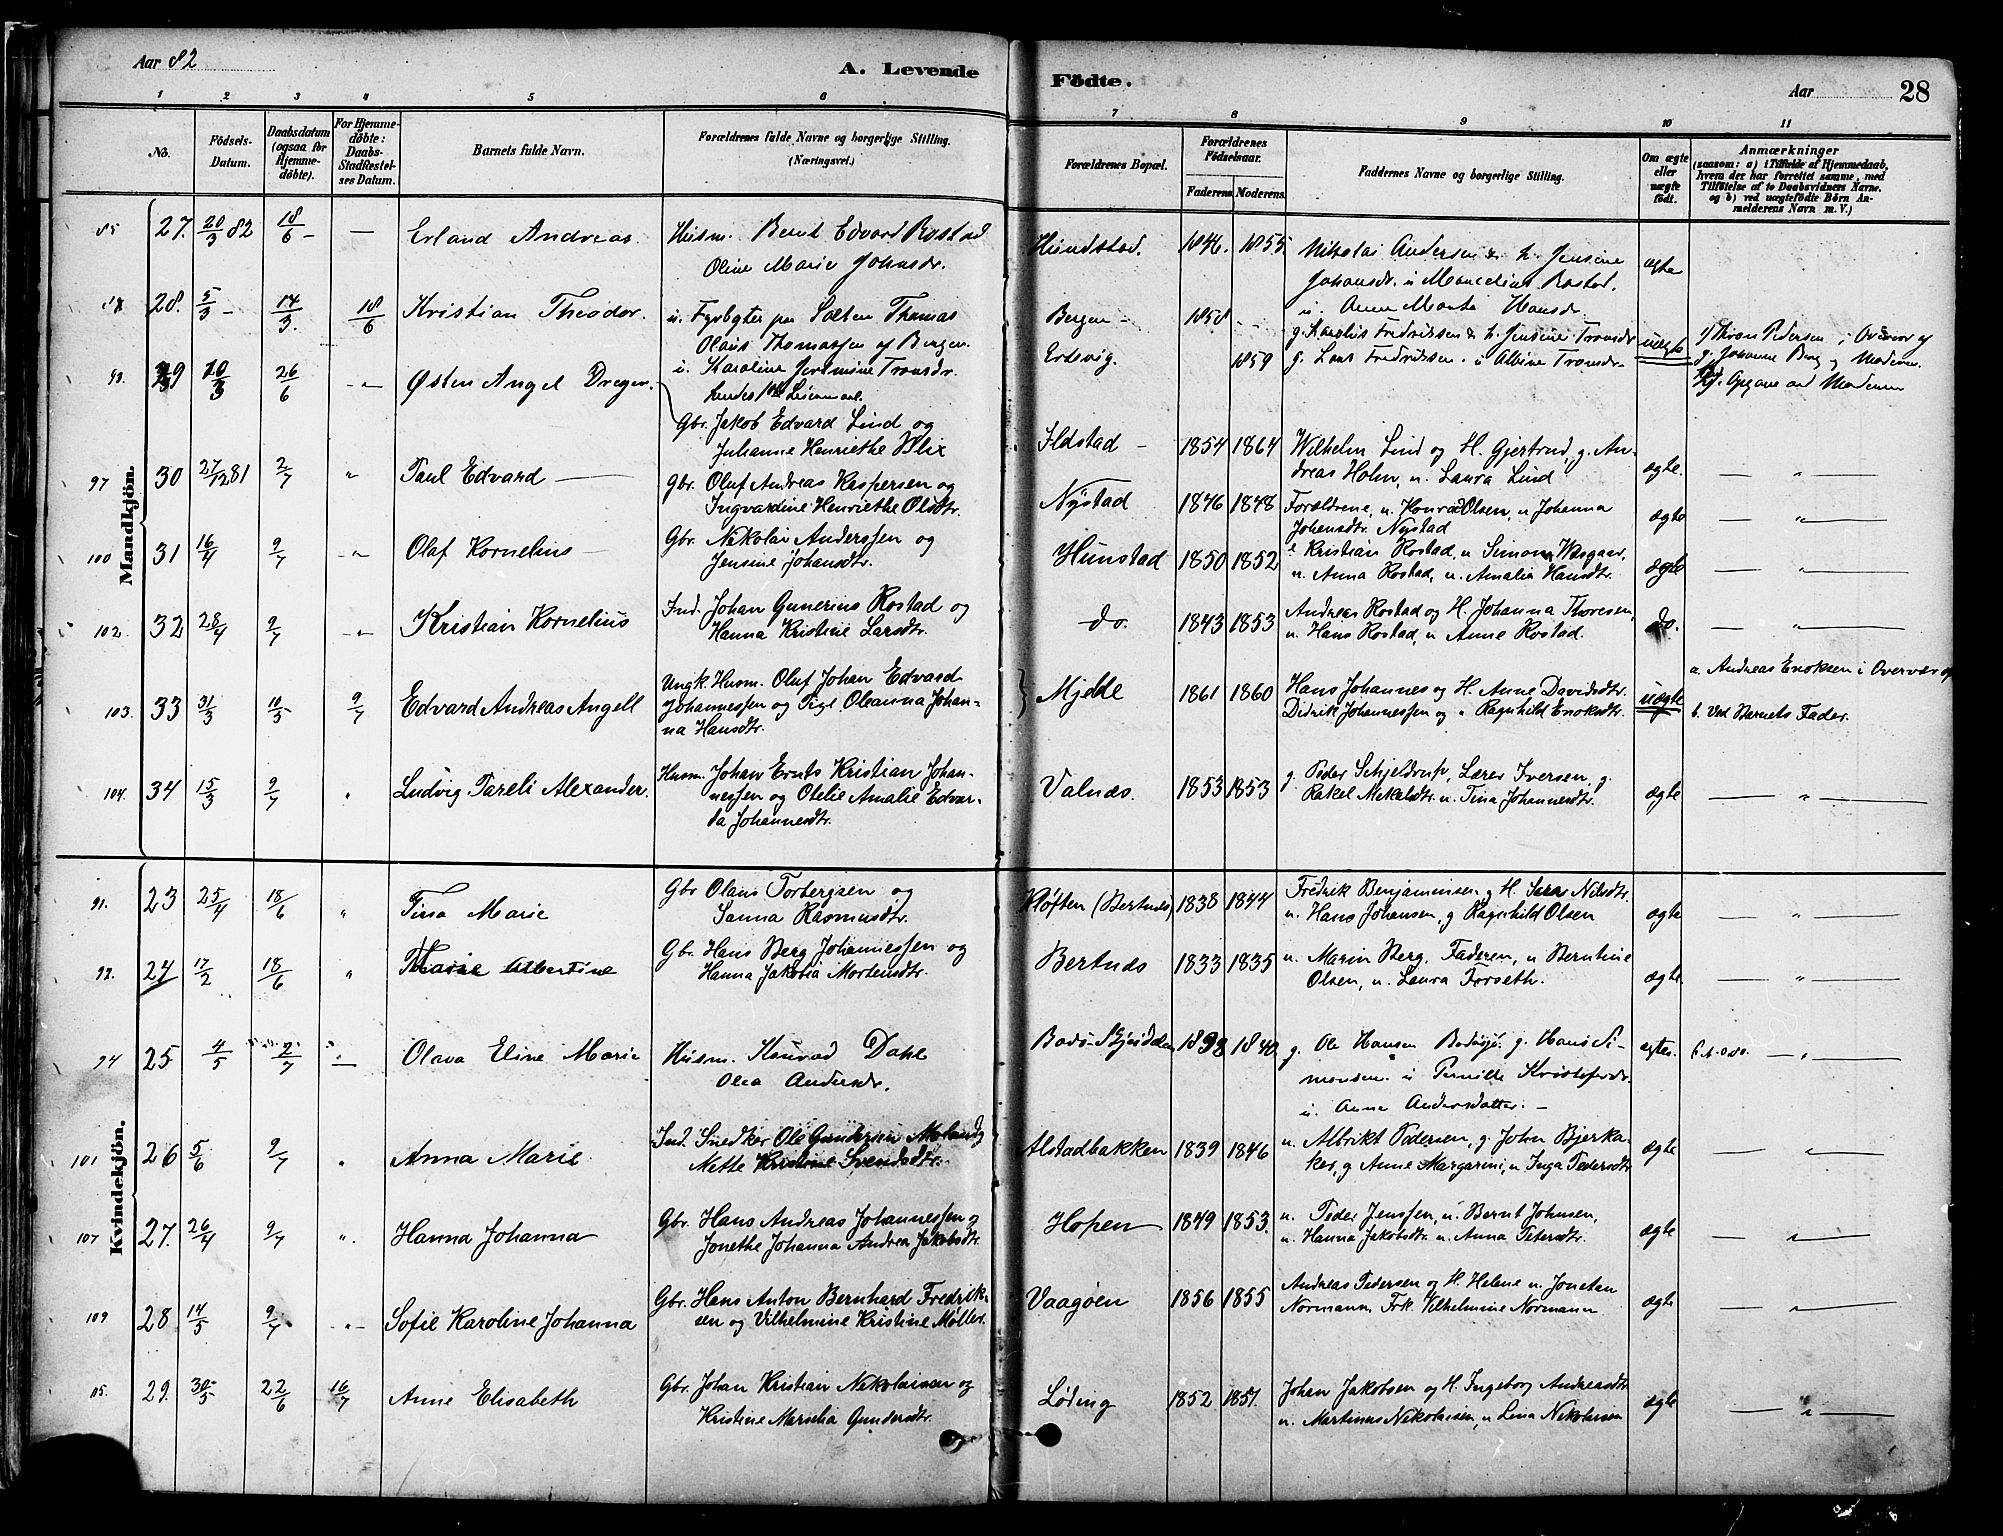 Aar 82
A. Levende Födte.
Aar 28
1 2 3 4 5 6 7 8 9 10 11
No.
Födsels-Datum.
Daabsdatum (ogsaa for Hjemmedöbte).
For Hjemmedöbte: Daabs-Stadfæstelses Datum.
Barnets fulde Navn.
Forældrenes fulde Navne og borgerlige Stilling.
(Næringsvei.)
Forældrenes Bopæl.
Forældrenes Födselsaar.
Faderens. Moderens.
Faddernes Navne og borgerlige Stilling.
Om ægte eller uægte födt.
Anmærkninger
(saasom: a) i Tilfælde af Hjemmedaab, hvem der har forrettet samme, med Tilföielse af to Daabsvidners Navne, og b) ved uægtefödte Börn Anmelderens Navn m. V.)
Mandkjön.
85 27. 20/3 82 18/6 – — Erland Andreas. Husm. Bernt Edvard Rostad
Oline Marie Johnsdr.
Hundstad. 1846. 1855. Nikolai Andersen & h. Jensine
Johansdr. u Marcelius Rostad.
u. Anne Marta Hansdr.
ægte
28. 5/3 – 17/3. 18/6 Kristian Theodor. u. Fyrbøter paa Salten Thomas
Olaus Thomassen af Bergen.
u. Karoline Jensine Tronsdr.
hendes 1ste Leiermaal.
Bergen – 1858 – –
Erdsvig. 1859
g. Karolus Fredriksen & h. Jensine Tronsdr
g. Lars Fredriksen. u Albine Tronsdr –
uægte
1) Thron Pedersen i Overvær af
g. Johanne Berg og Moderen.
Opgave ved Moderen
93. 29 20/3 26/6 – " Østen Angel Dreyer. Gbr. Jakob Edvard Lind og
Johanne Henriethe Blix
Ildstad – 1854 1864 Wilhelm Lind og H. Gjertrud, g. An-
dreas Holm, u. Laura Lind
ægte. — " —
97 30 27/12 81 2/7 " Paul Edvard — Gbr. Oluf Andreas Kaspersen og
Ingvardine Henriethe Olsdtr.
Nystad 1846 1848 Forældrene, u. Konrad Olsen, u Johanna
Johansdtr. Nystad
ægte — " —
100 31 16/4 9/7 – " Olaf Kornelius — Gbr. Nekolai Anderssen og
Jensine Johansdtr.
Hunstad 1850 1852 Kristian Rostad, u Simon Vasgaar,
u. Anna Rostad, u. Amalia Hansdtr.
ægte — " —
102. 32 28/4 9/7 – " Kristian Kornelius Ind. Johan Gunerius Rostad og
Hanna Kristine Larsdtr.
do. 1843 1853 Andreas Rostad og H. Johanna Thoresen,
u. Hans Rostad, u Anne Rostad.
do. — " —
103. 33 31/3 10/5 9/7 Edvard Andreas Angell Ungk. Husm. Oluf Johan Edvard
Johannessen og Pige Oleanna Johan-
na Hansdtr.
Mjelde 1861 1860 Hans Johannes og H. Anne Davidsdtr.
Didrik Johannessen og " Ragnhild Enoksdtr.
uægte
a. Andreas Enoksen i Overvær af
b. Ved Barnets Fader.
104. 34 15/3 9/7 " Ludvig Pareli Alexander. Husm. Johan Ernts Kristian Johan-
nessen og Otelie Amalie Edvar-
da Johannesdtr.
Valnes. 1853 1853 g. Peder Schjeldrup, Lærer Iversen, g.
Rakel Mekaldtr. u. Tina Johannesdtr.
ægte — " —
Kvindekjön.
91. 23 25/4 18/6 " Tina Marie Gbr Olaus Torbergsen og
Sanna Rasmusdtr.
Kløften (Bertnes) 1838 1844 Fredrik Benjaminsen g H. Sara Nilsdtr.
u. Hans Johansen, g Ragnhild Olsen
ægte — " —
92. 24 17/2 18/6 " Marie Albertine Gb. Hans Berg Johannessen og
Hanna Jakobia Mortensdtr.
Bertnes 1833 1835 u. Marin Berg, Faderen, u Berntine
Olsen, u. Laura Forseth.
ægte. — " —
94 25 4/5 2/7 — Olava Eline Marie Husm. Konrad Dahl
Olea Andersdr.
Bodø-Skjeidalen 1840. g. Ole Hansen Bodøsjø. g. Hans Si-
monsen. u Pernille Kristofersdr.
u. Anna Andersdatter. –
ægte. — " —
101 26 5/6 9/7 " Anna Marie. Ind. Snedker Ole Gundersen Moland og
Mette Kristine Svendsdtr.
Alstadbakken 1839 1846 u. Albrikt Pedersen, g. John Bjerka-
ker, g Anne Margarini, u. Inga Pedersdtr
ægte — " —
107 27. 26/4 9/7 ". Hanna Johanna Gbr. Hans Andreas Johannessen og
Jonethe Johanna Andrea Jakobsdtr.
Hopen 1849 1853. u. Peder Jenssen, u. Bernt Johnsen,
u. Hanna Jakobsdtr u. Anna Petersdtr.
ægte — " —
109 28 14/5 9/7 – " – Sofie Karoline Johanna Gbr. Hans Anton Bernhard Fredrik-
sen og Vilhelmine Kristine Møller.
Vaagøen 1856 1855 Andreas Pedersen og H. Helene u. Jonetan
Normann Frk. Vilhelmine Normann
ægte — " —
29. 30/5 22/6 16/7 Anne Elisabeth Gbr. Johan Kristian Nekolaisen og
Kristine Marselia Gundersdtr.
Løding 1852 1851. Johan Jakobsen og H. Ingeborg Andreasdtr
u. Martinus Nekolaisen, u Lina Nekolaisen
ægte — " —